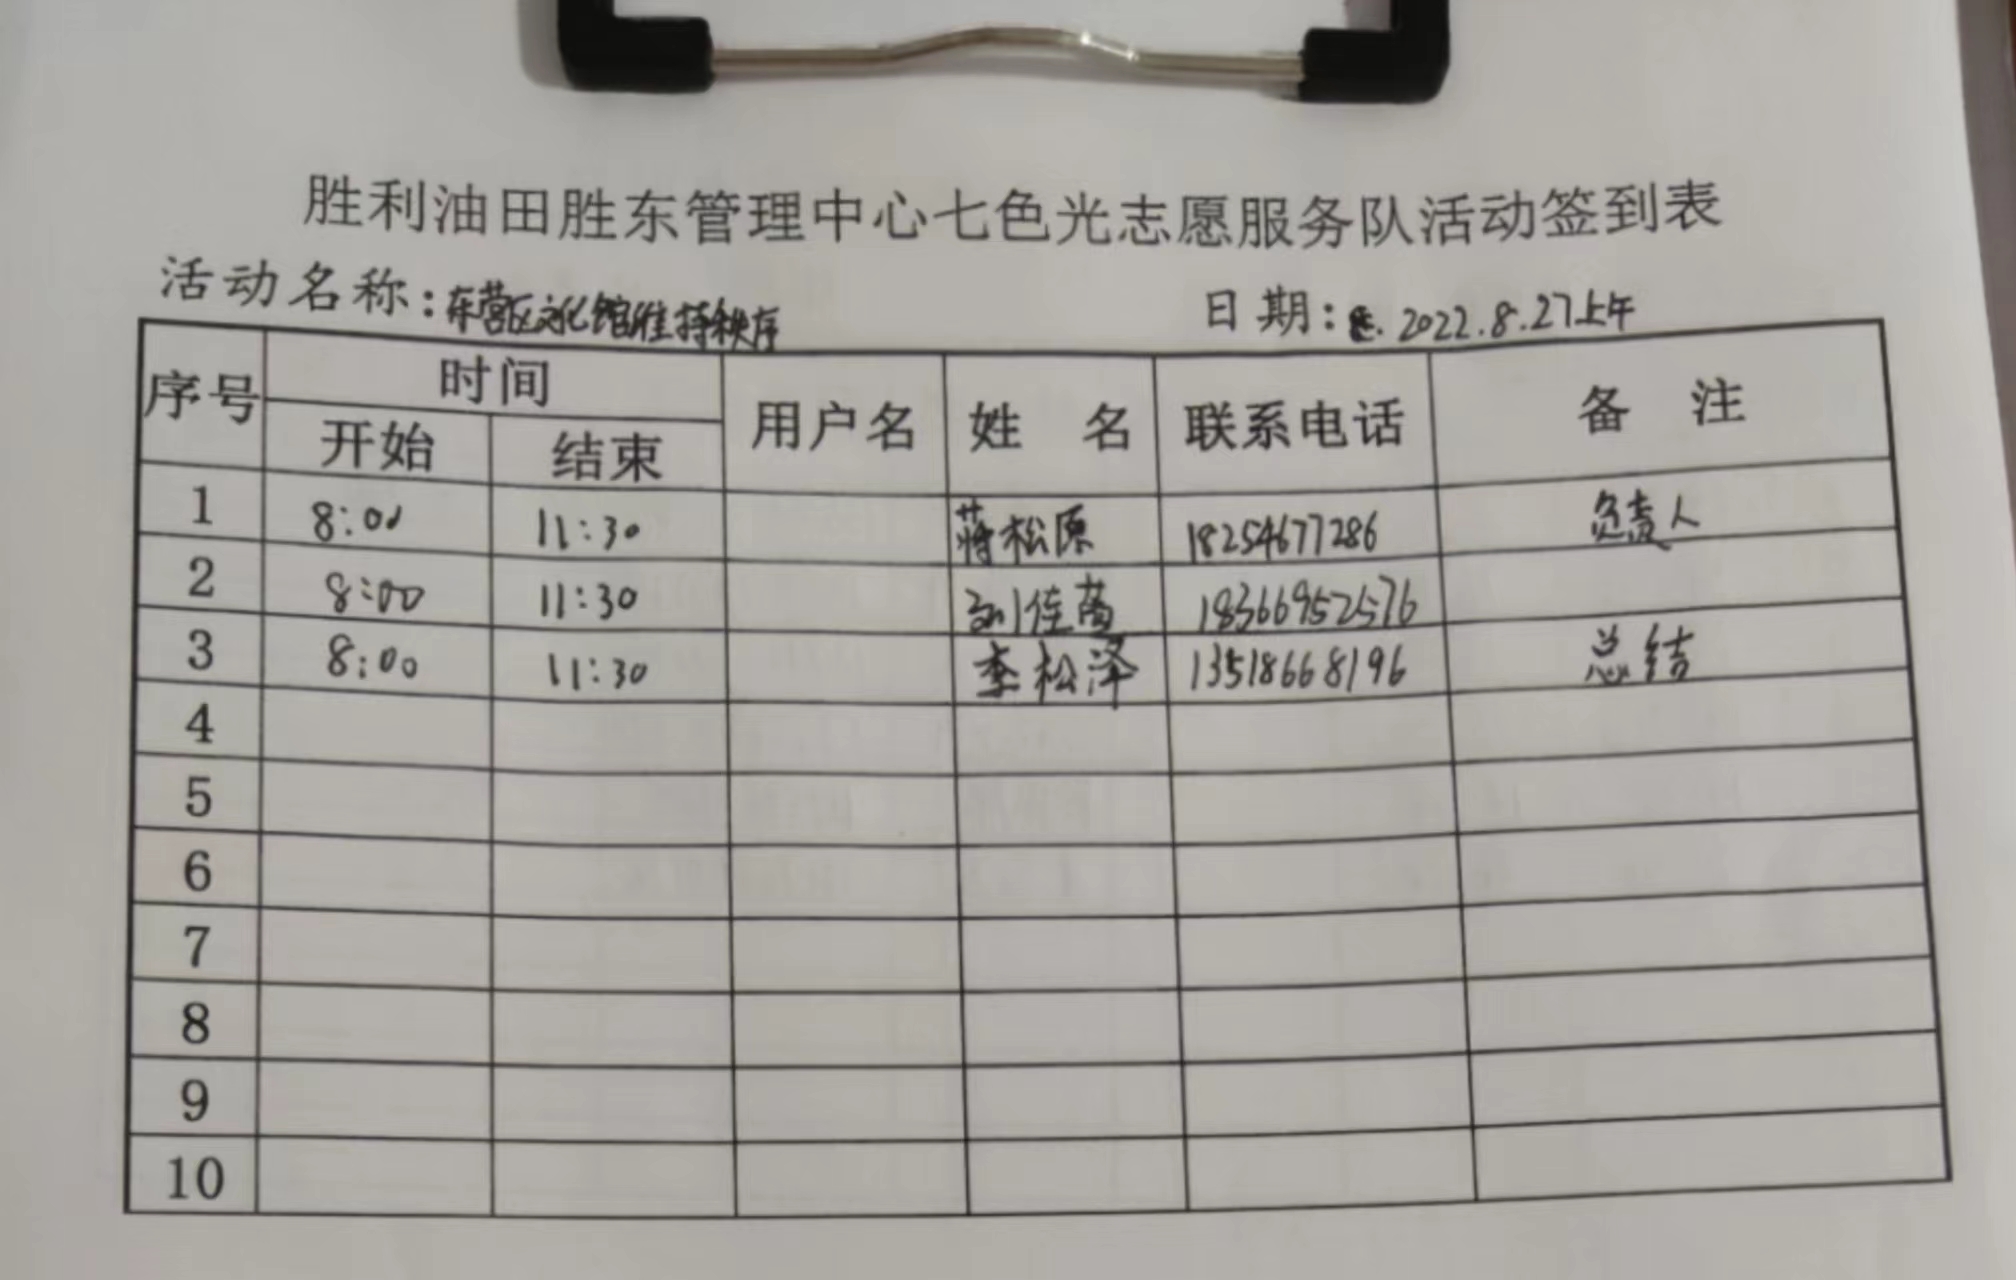 胜利油田胜东管理中心七色光志愿服务队活动签到表
活动名称：东营区文化馆维持秩序 日期： 2022.8.27上午
序号 时间 用户名 姓 名 联系电话 备 注
开始 结束
1 8:00 11:30 蒋松原 18254677286 负责人
2 8:00 11:30 刘佳 18366952576
3 8:00 11:30 李松泽 13518668196 总结
4
5
6
7
8
9
10